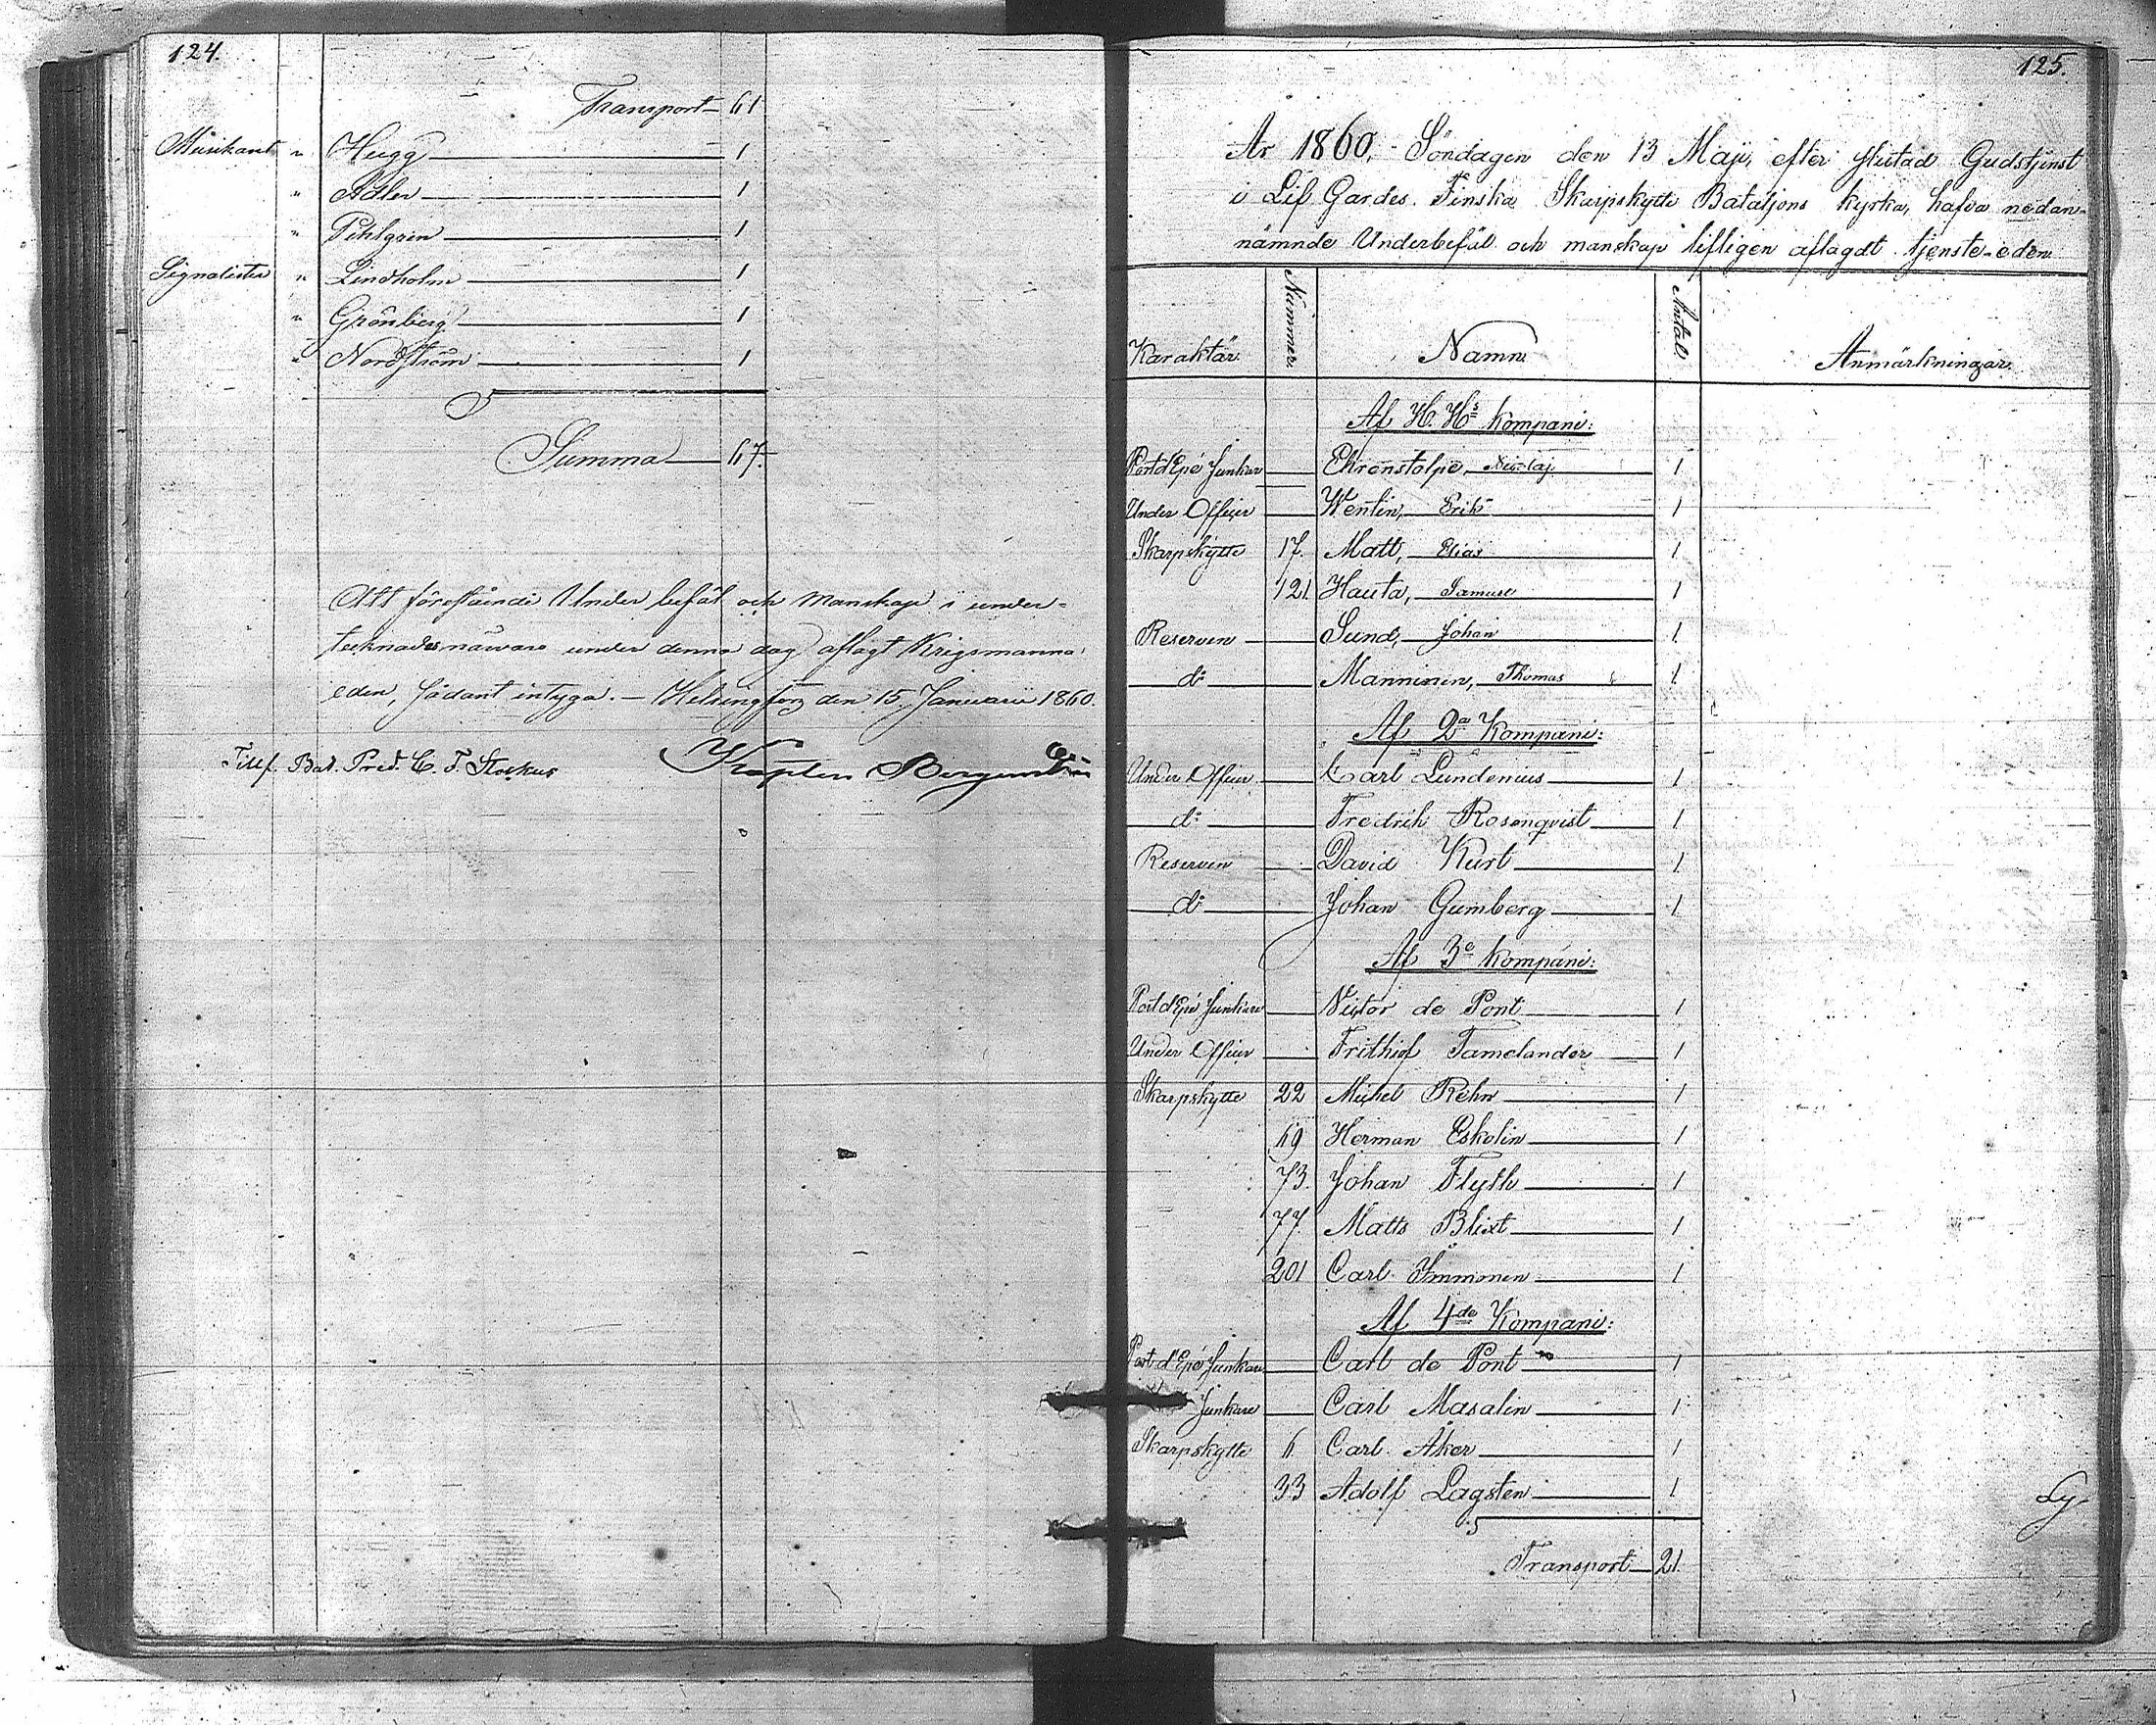 124.
Transport 61
Musikant " Hugg 1
" Adler 1
" Pihlgren 1
Signalister " Lindholm 1
" Grönberg 1
" Nordström 1
Summa 67.
Att förestående Under befäl och Manskap i under-
tecknades närvaro under denna dag aflagt Krigsmanna
eden, sådant intyga. — Helsingfors den 15 Januarii 1860.
Tillf. Bat. Pred. C. F.
125.
År 1860, Söndagen den 13 Maji, efter slutad Gudstjenst
i Lif Gardes Finska Skarpskytte Bataljons kyrka, hafva nedan-
nämnde Underbefäl och manskap lifligen aflagdt tjenste-eden
Karaktär Nummer. Namn Antal. Anmärkningar.
Af H. H:s Kompani:
Port d'Epé Junkar Ehrenstolpe, Nicolaj 1
Under Officer Wentin, Erik 1
Skarpskytte 17. Matt, Elias 1
121 Hauta, Samuel 1
Reserven Sund, Johan 1
d:o Manninen, Thomas 1
Af 2:a Kompani:
Under Officer Carl Lundenius 1
d:o Fredrik Rosenqvist 1
Reserven David Kurt 1
d:o Johan Gumberg 1
Af 3:e Kompani:
Port d'Epé Junkare Victor de Pont 1
Under Officer Frithiof Tamelander 1
Skarpskytte 22 Michel Rehn 1
69 Herman Eskolin 1
73. Johan Flyth 1
77. Matts Blixt 1
201 Carl Immonen 1
Af 4:de Kompani:
Port d'Epé Junkare Carl de Pont 1
Junkare Carl Masalin 1
Skarpskytte 6 Carl Åker 1
33 Adolf Lagsten 1
Transport 21.